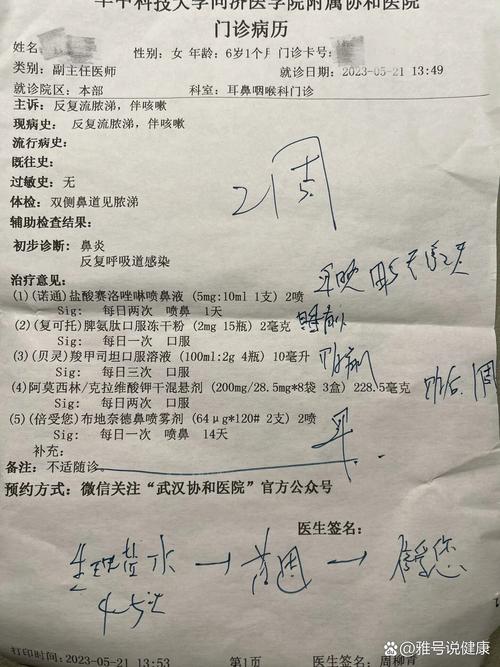 华中科技大学同济医学院附属协和医院
门诊病历
姓名: 性别: 女 年龄: 6岁1个月 门诊卡号:
类别: 副主任医师 就诊日期: 2023-05-21 13:49
就诊院区: 本部 科室: 耳鼻咽喉科门诊
主诉: 反复流脓涕, 伴咳嗽
现病史: 反复流脓涕, 伴咳嗽
流行病史:
既往史:
过敏史: 无
体检: 双侧鼻道见脓涕
2周
辅助检查结果:
初步诊断: 鼻炎
反复呼吸道感染
治疗意见:
(1)(诺通)盐酸赛洛唑啉喷鼻液 (5mg:10ml 1支) 2喷
Sig: 每日两次 喷鼻 1天
(2)(复可托)脾氨肽口服冻干粉 (2mg 15瓶) 2毫克
Sig: 每日一次 口服
(3)(贝灵)羧甲司坦口服溶液 (100ml:2g 4瓶) 10毫升
Sig: 每日三次 口服
(4)阿莫西林/克拉维酸钾干混悬剂 (200mg/28.5mg*8袋 3盒) 228.5毫克
Sig: 每日两次 口服
(5)(倍受您)布地奈德鼻喷雾剂 (64μg*120# 2支) 2喷
Sig: 每日一次 喷鼻 14天
补充:
备注: 不适随诊.
预约方式: 微信关注“武汉协和医院”官方公众号
医生签名:
生理盐水 → →
医生签名: 周柳青
打印时间: 2023-05-21 13:53 第1页
雅号说健康